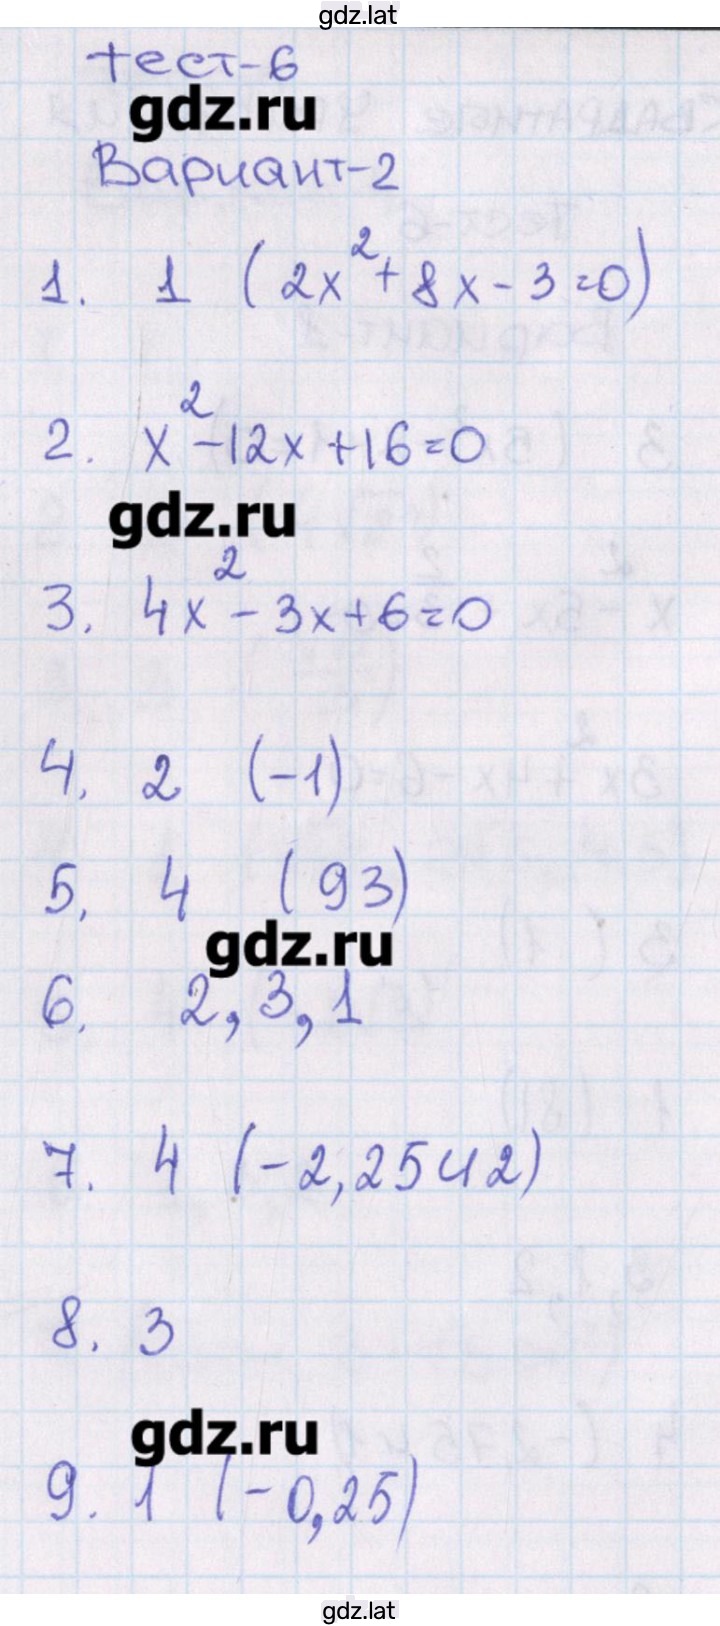 gdz.lat
Тест-6
gdz.ru
Вариант-2
1. 1 (2x²+8x-3=0)
2. x²-12x+16=0
gdz.ru
3. 4x²-3x+6=0
4. 2 (-1)
5. 4 (93)
gdz.ru
6. 2,3,1
7. 4 (-2,25 и 2)
8. 3
gdz.ru
9. 1 (-0,25)
gdz.lat